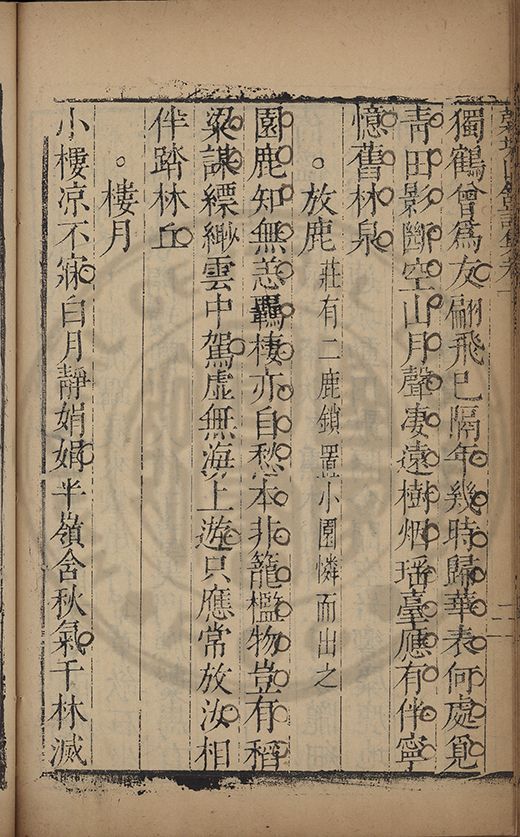 獨鶴曾爲友翩飛已隔年幾時歸華表何處覓
青田影斷空山月聲凄遠樹烟瑶臺應有伴寧
憶舊林泉
放鹿 莊有二鹿鎖置小園憐而出之
園鹿知無恙羈棲亦自愁本非籠檻物豈有稻
粱謀縹緲雲中駕虛無海上遊只應常放汝相
伴踏林丘
樓月
小樓凉不寐白月靜娟娟半嶺含秋氣千林滅